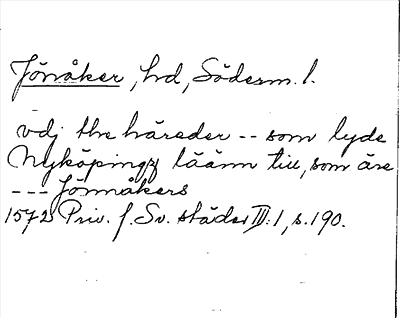 Jönåker, hd, Söderm. l.
vdj the härader -- som lyde
Nyköpings läänn till, som äre
--- Jönnåkers
1572 Priv. f. Sv. städer III: 1, s. 190.